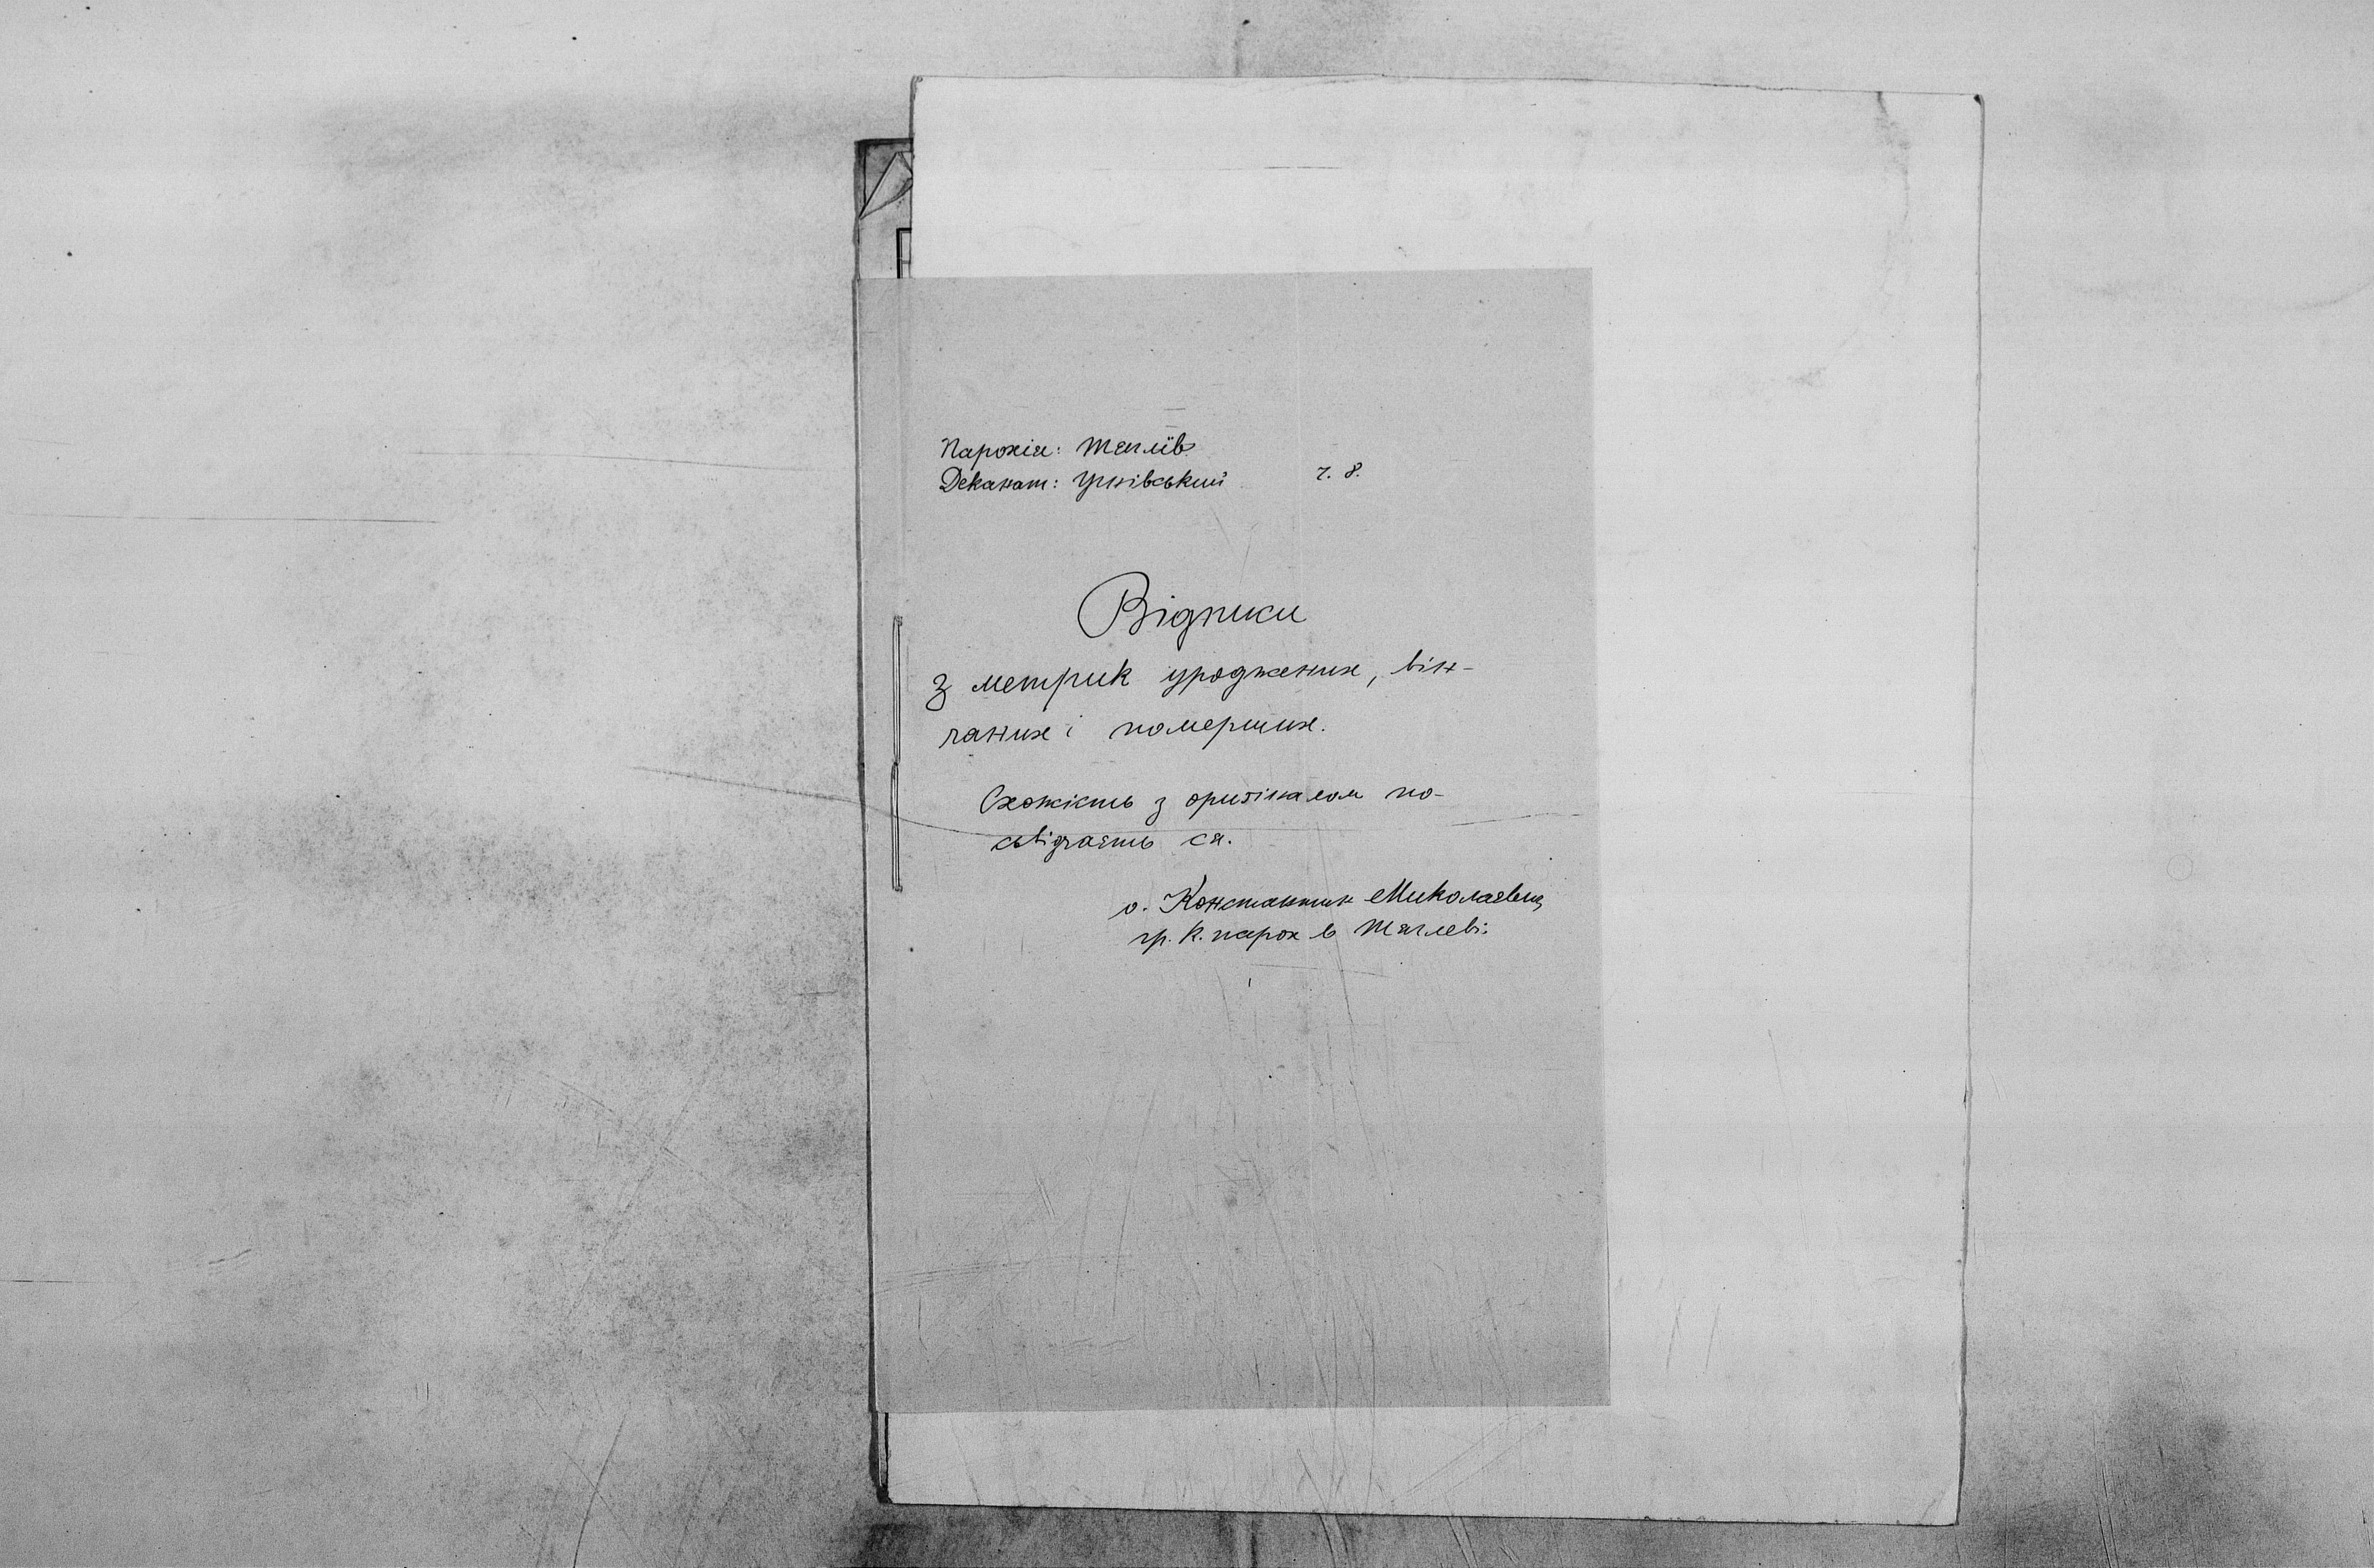 Парохія: Тяглів
Деканат: Угнівський ч. 8.
Відписи
з метрик уроджених, він-
чаних і померших.
Схожість з оріґіналом по-
свідчаєть ся.
о. Константин Миколаєвич
гр. к. парох в Тяглеві.